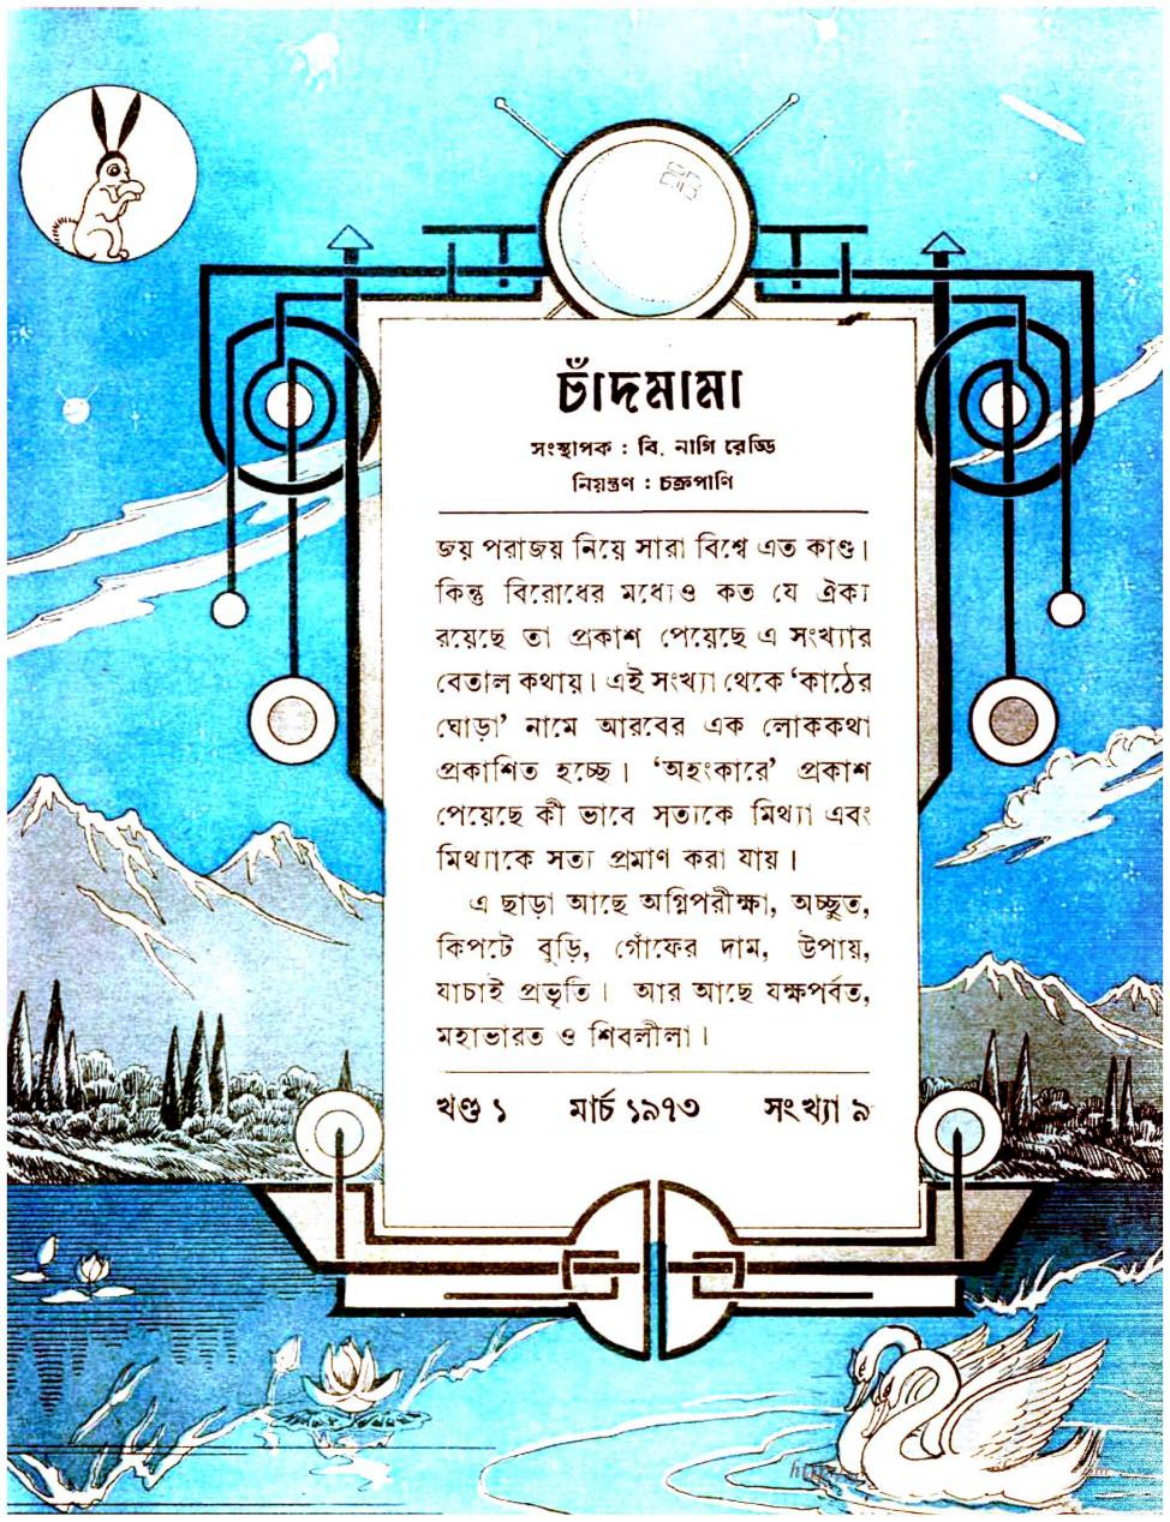 চাঁদমামা
সংস্থাপক : বি. নাগি রেড্ডি
নিয়ন্ত্রণ : চক্রপাণি
জয় পরাজয় নিয়ে সারা বিশ্বে এত কাণ্ড।
কিন্তু বিরোধের মধ্যেও কত যে ঐক্য
রয়েছে তা প্রকাশ পেয়েছে এ সংখ্যার
বেতাল কথায়। এই সংখ্যা থেকে ‘কাঠের
ঘোড়া’ নামে আরবের এক লোককথা
প্রকাশিত হচ্ছে। ‘অহংকারে’ প্রকাশ
পেয়েছে কী ভাবে সত্যকে মিথ্যা এবং
মিথ্যাকে সত্য প্রমাণ করা যায়।
এ ছাড়া আছে অগ্নিপরীক্ষা, অচ্ছুত,
কিপটে বুড়ি, গোঁফের দাম, উপায়,
যাচাই প্রভৃতি। আর আছে যক্ষপর্বত,
মহাভারত ও শিবলীলা।
খণ্ড ১ মার্চ ১৯৭৩ সংখ্যা ৯